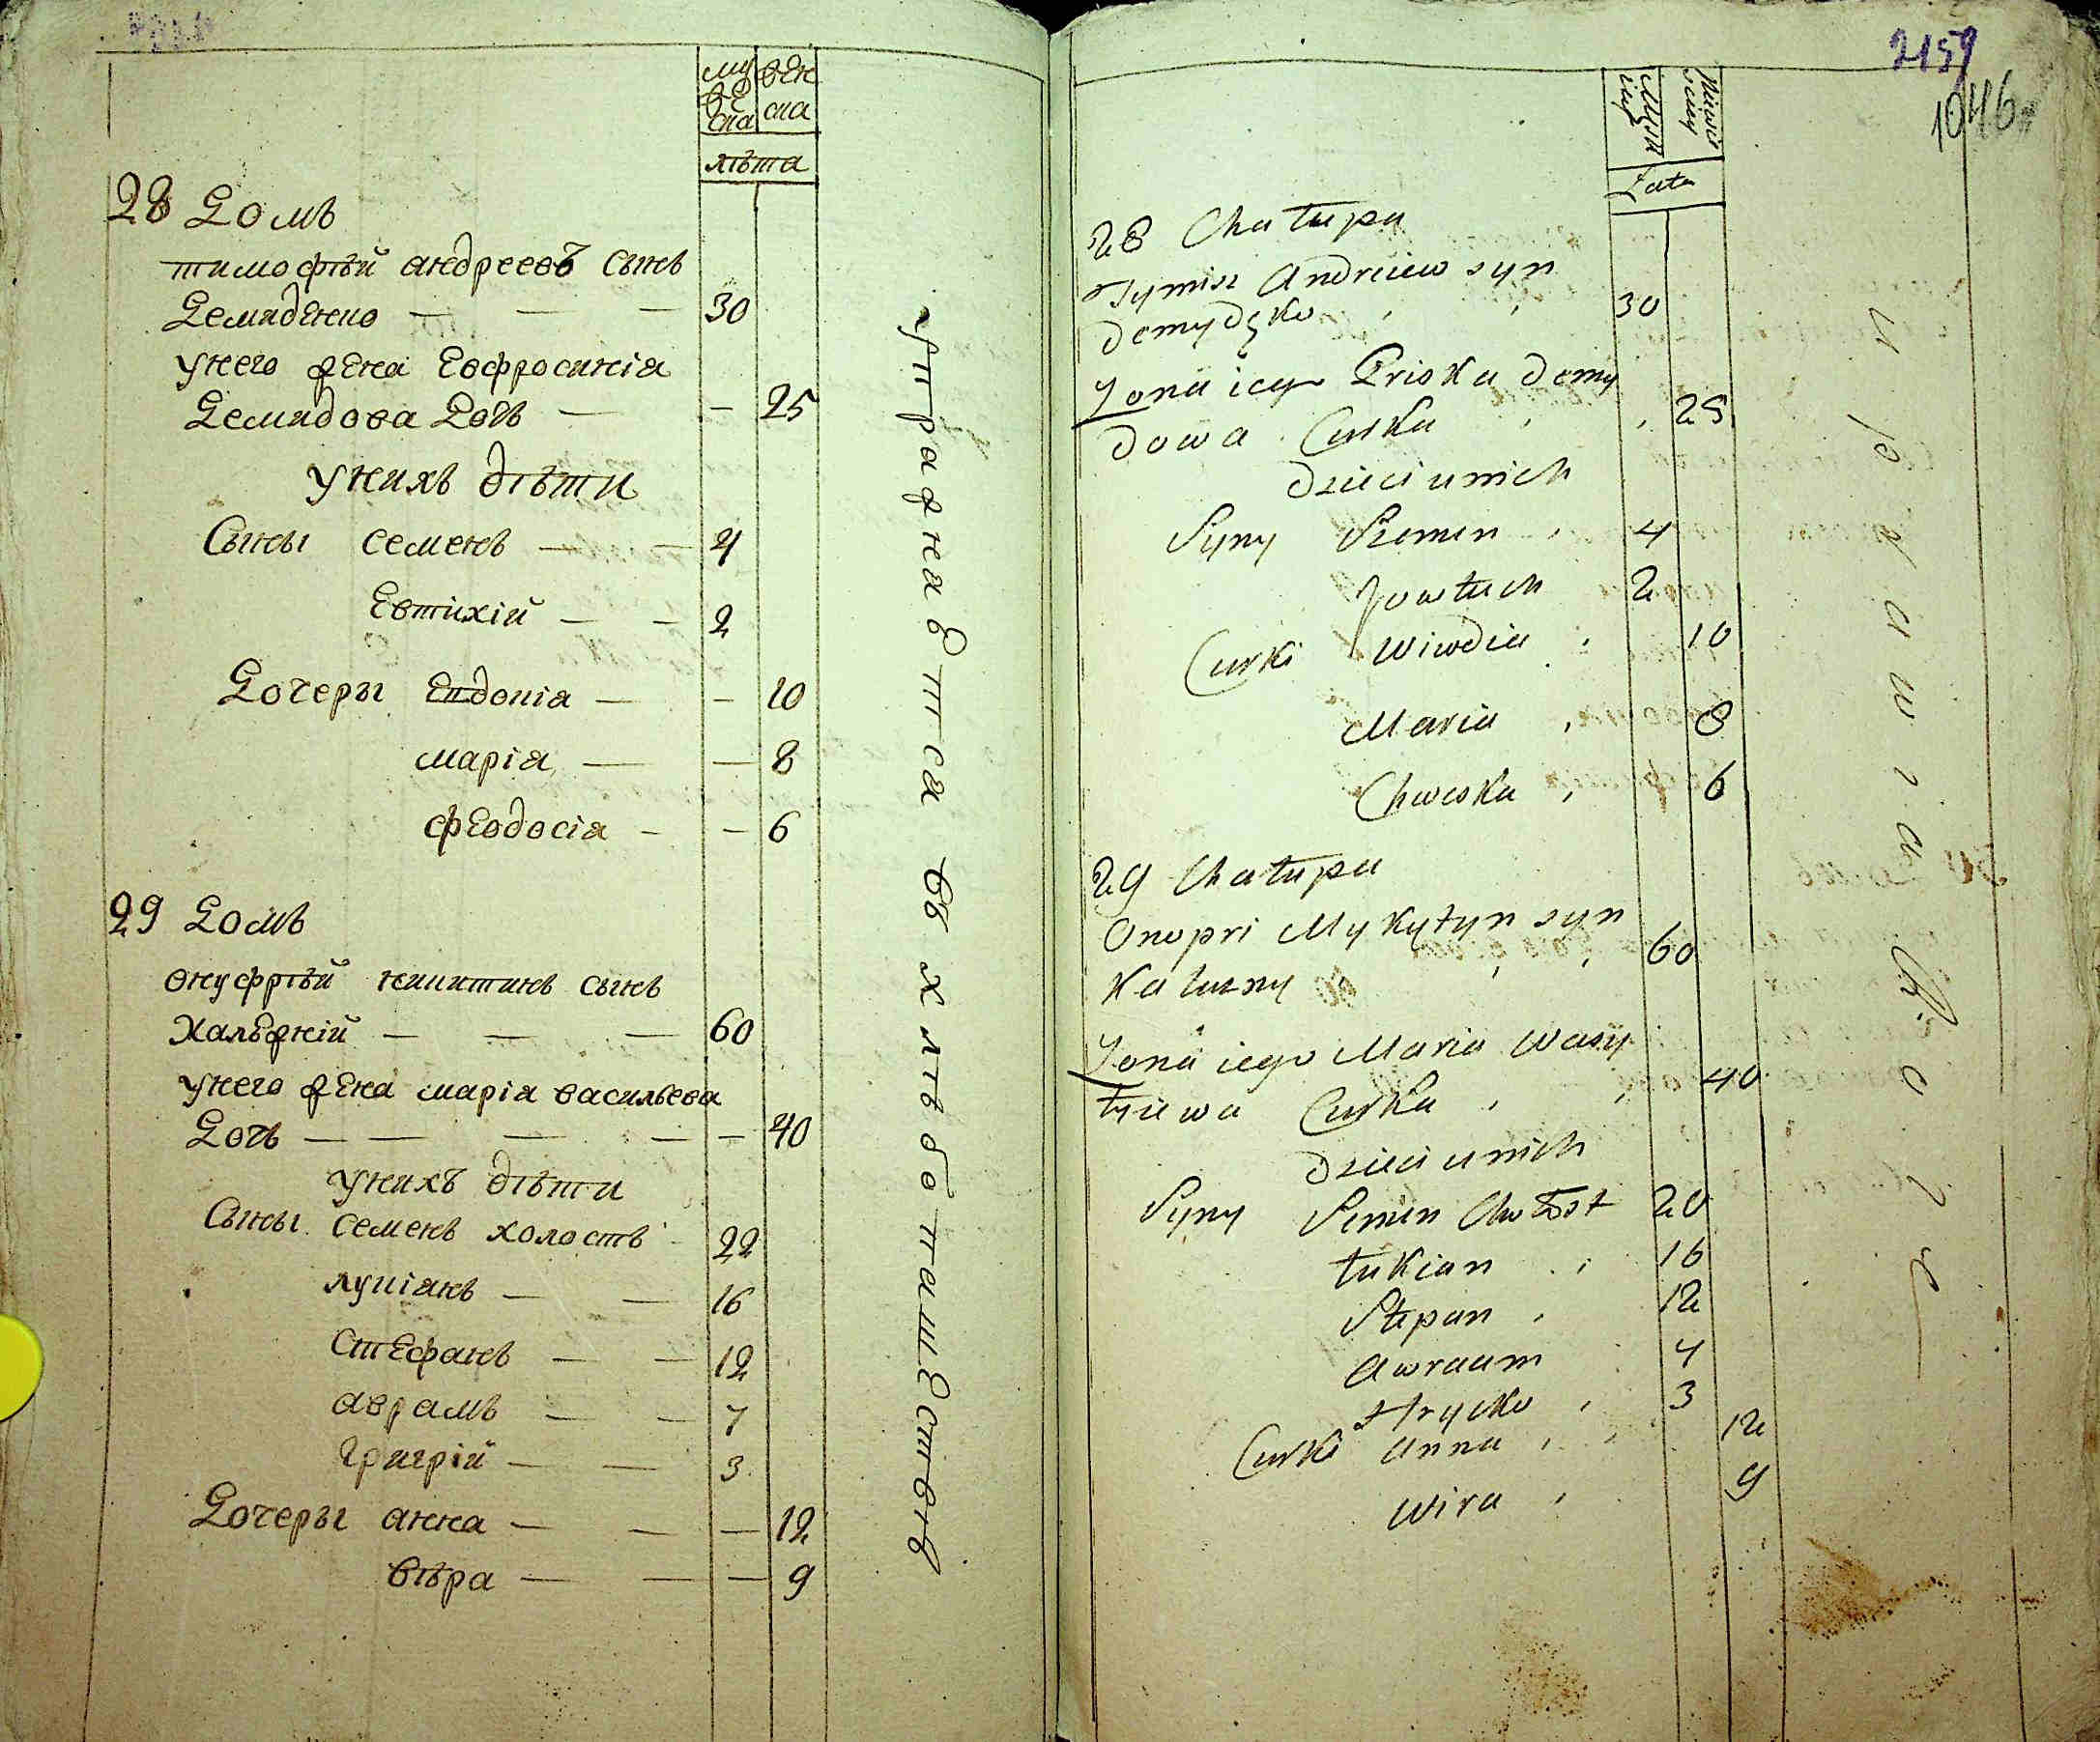 му
же
ска
жен
ска
лѣта
28 Домъ
тимофѣй андреевъ сынъ
Демиденко — — — 30
унего жена Евфросинія
Демидова Дочь — — 25
унихъ дѣти
Сыны семенъ — — 4
Евтихій — — 2
Дочеры Евдокія — — 10
марія — — 8
феодосія — — 6
29 Домъ
онуфрѣй никитинъ сынъ
Калюжній — — — 60
унего жена марія васильева
Дочь — — — — — 40
унихъ дѣти
Сыны семенъ холостъ 22
лукіянъ — — 16
Стефанъ — — 12
аврамъ — — 7
григрій — — 3
Дочеры анна — — — 12
вѣра — — — 9
упражнаетса въ хлѣбопашествѣ
2159
1046
Męsk
iey
Lata
28 Chałupa
Tymisz Andreiew syn
Demydęko 30
Żona iego Priska Demy
dowa Curka 25
Dzieci u nich
Syny Szemen 4
Jowtuch 2
Curki Wiwdia 10
Maria 8
Chweska 6
29 Chałupa
Onopri Mykytyn syn
Kalużny 60
Żona iego Maria Wasy
lyiewa Curka 40
Dzieci u nich
Syny Semen Chołost 20
Łukian 16
Stepan 12
Awraam 4
Hrycko 3
Curki Anna 12
Wira 9
uprawia Rolę